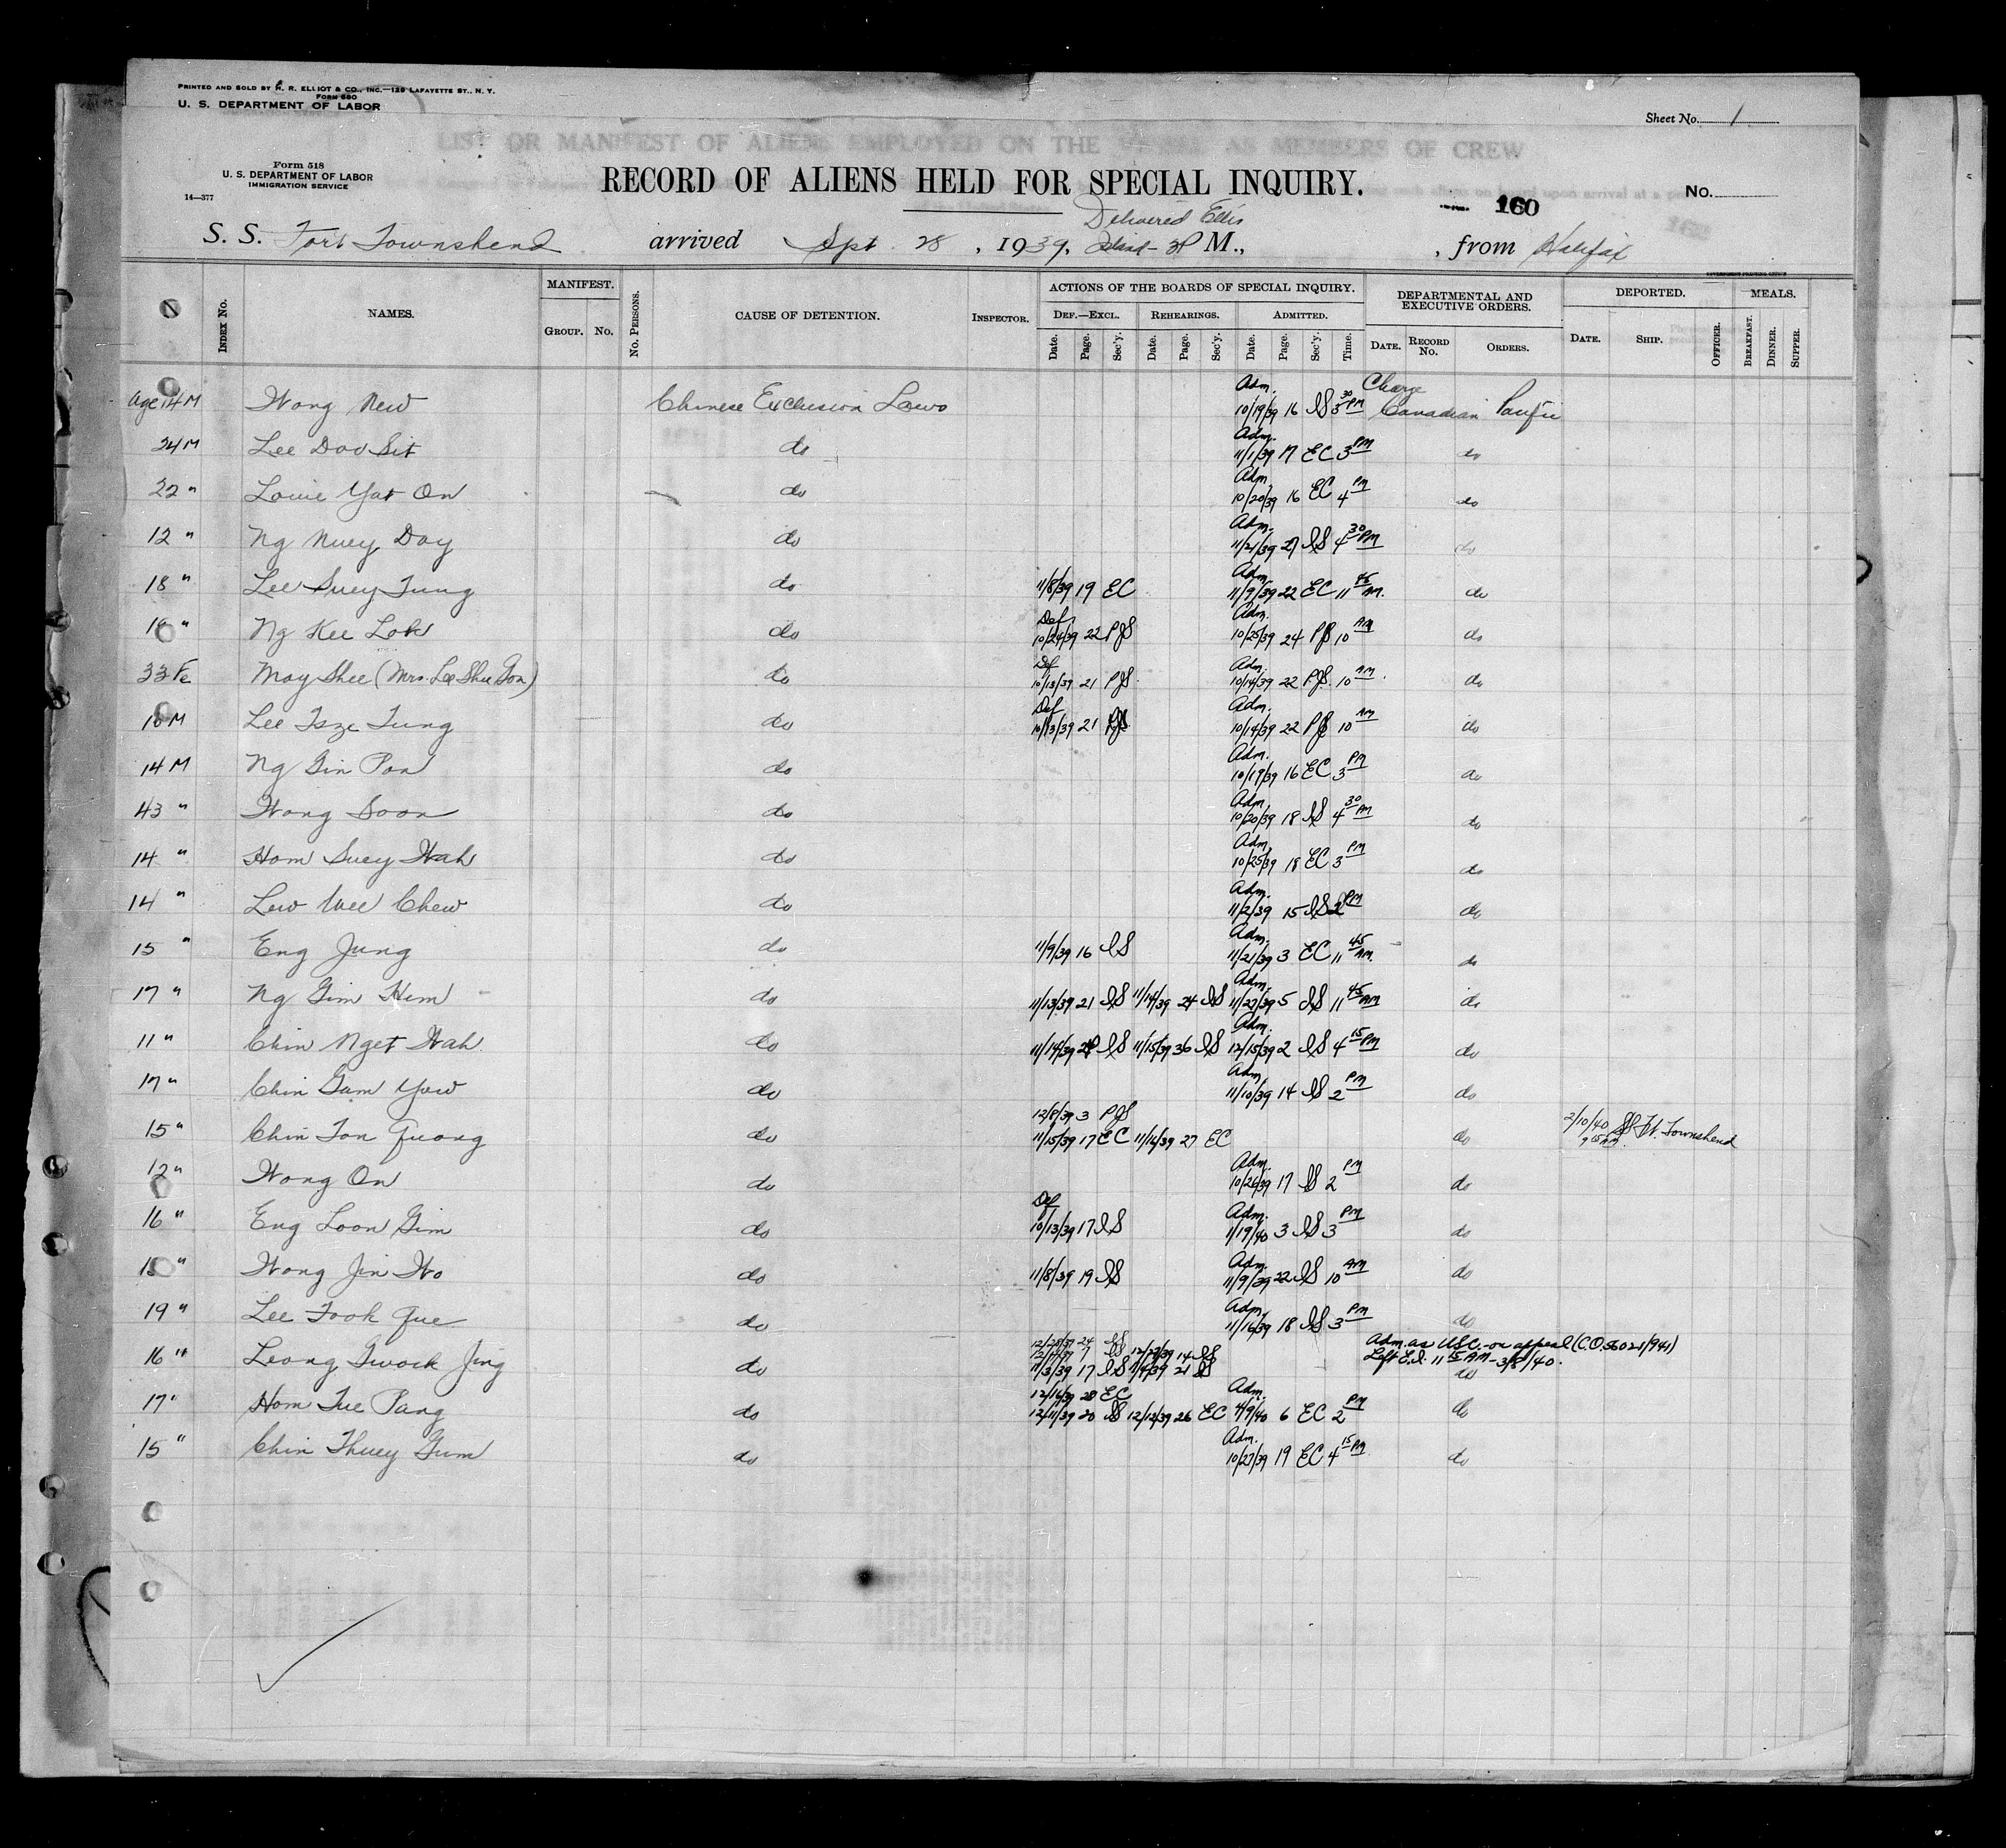 PRINTED AND SOLD BY H. R. ELLIOT & CO., INC.—129 LAFAYETTE ST., N. Y.
FORM 660
U. S. DEPARTMENT OF LABOR
Sheet No. 1
LIST OR MANIFEST OF ALIENS EMPLOYED ON THE VESSEL AS MEMBERS OF CREW
Form 518
U. S. DEPARTMENT OF LABOR
IMMIGRATION SERVICE
14—377
RECORD OF ALIENS HELD FOR SPECIAL INQUIRY.
No.
160
Delivered Ellis
S. S. Fort Townshend arrived Sept. 28, 1939, Island - 3P M., , from Halifax
INDEX No. NAMES. MANIFEST. GROUP. No. No. PERSONS. CAUSE OF DETENTION. INSPECTOR. ACTIONS OF THE BOARDS OF SPECIAL INQUIRY. DEPARTMENTAL AND EXECUTIVE ORDERS. DEPORTED. MEALS.
DEF.—EXCL. REHEARINGS. ADMITTED.
Date. Page. Sec'y. Date. Page. Sec'y. Date. Page. Sec'y. Time. DATE. RECORD No. ORDERS. DATE. SHIP. OFFICER. BREAKFAST. DINNER. SUPPER.
Age 14 M Wong New Chinese Exclusion Laws Adm. 10/19/39 16 IS 3 30 PM Charge Canadian Pacific
24 M Lee Doo Sit do Adm. 11/1/39 17 EC 3 PM do
22 " Louie Yat On do Adm. 10/20/39 16 EC 4 PM do
12 " Ng Nuey Doy do Adm. 11/21/39 27 IS 4 30 PM do
18 " Lee Suey Tung do 11/8/39 19 EC Adm. 11/9/39 22 EC 11 45 AM. do
" Ng Kee Lok do Def 10/24/39 22 PJS Adm. 10/25/39 24 PJS 10 AM do
33 Fe May Shee (Mrs. Lee Shue Gon) do Def 10/13/39 21 PJS Adm. 10/14/39 22 PJS. 10 AM do
10 M Lee Tsze Tung do Def 10/13/39 21 PJS Adm. 10/14/39 22 PJS 10 AM do
14 M Ng Gin Pon do Adm. 10/19/39 16 EC 3 PM do
43 " Wong Soon do Adm. 10/20/39 18 IS 4 30 PM do
14 " Hom Suey Wah do Adm. 10/25/39 18 EC 3 PM do
14 " Lew Wee Chew do Adm. 11/2/39 15 IS 2 PM do
15 " Eng Jung do 11/9/39 16 IS Adm. 11/21/39 3 EC 11 45 AM. do
17 " Ng Gim Hem do 11/13/39 21 IS 11/14/39 24 IS Adm. 11/27/39 5 IS 11 45 AM do
11 " Chin Nget Wah do 11/14/39 IS 11/15/39 36 IS Adm. 12/15/39 2 IS 4 15 PM do
17 " Chin Gam Yow do Adm. 11/10/39 14 IS 2 PM do
12/8/39 3 PJS
15 " Chin Ton Quong do 11/15/39 17 EC 11/16/39 27 EC do 2/10/40 9 15 AM SS Ft. Townshend
12 " Wong On do Adm. 10/26/39 17 IS 2 PM do
16 " Eng Loon Gim do Def 10/13/39 17 IS Adm. 1/19/40 3 IS 3 PM do
" Wong Jin Wo do 11/8/39 19 IS Adm. 11/9/39 22 IS 10 AM do
19 " Lee Fook Que do Adm. 11/16/39 18 IS 3 PM do
24 IS Adm. as USC.- on appeal (C.O. 56021/941)
7 IS 14 IS Left E.I. 11 15 AM - 3/8/40.
16 " Leong Gwock Jing do 11/3/39 17 IS 11/4/39 21 IS do
12/16/39 28 EC
17 " Hom Tue Pang do 12/11/39 20 IS 12/12/39 26 EC Adm. 4/9/40 6 EC 2 PM do
15 " Chin Thuey Gum do Adm. 10/27/39 19 EC 4 15 PM do